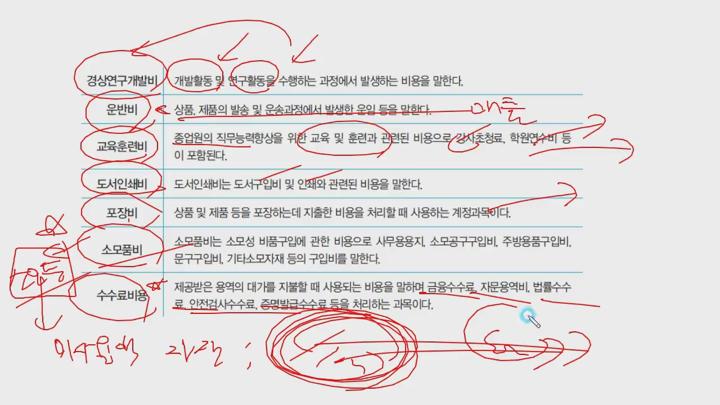 경상연구개발비 개발활동 및 연구활동을 수행하는 과정에서 발생하는 비용을 말한다.
운반비 상품, 제품의 발송 및 운송과정에서 발생한 운임 등을 말한다. 매출
교육훈련비 종업원의 직무능력향상을 위한 교육 및 훈련과 관련된 비용으로 강사초청료, 학원연수비 등
이 포함된다.
도서인쇄비 도서인쇄비는 도서구입비 및 인쇄와 관련된 비용을 말한다.
포장비 상품 및 제품 등을 포장하는데 지출한 비용을 처리할 때 사용하는 계정과목이다.
소모품비 소모품비는 소모성 비품구입에 관한 비용으로 사무용용지, 소모공구구입비, 주방용품구입비,
문구구입비, 기타소모자재 등의 구입비를 말한다.
수수료비용 제공받은 용역의 대가를 지불할 때 사용되는 비용을 말하며 금융수수료, 자문용역비, 법률수수
료, 안전검사수수료, 증명발급수수료 등을 처리하는 과목이다.